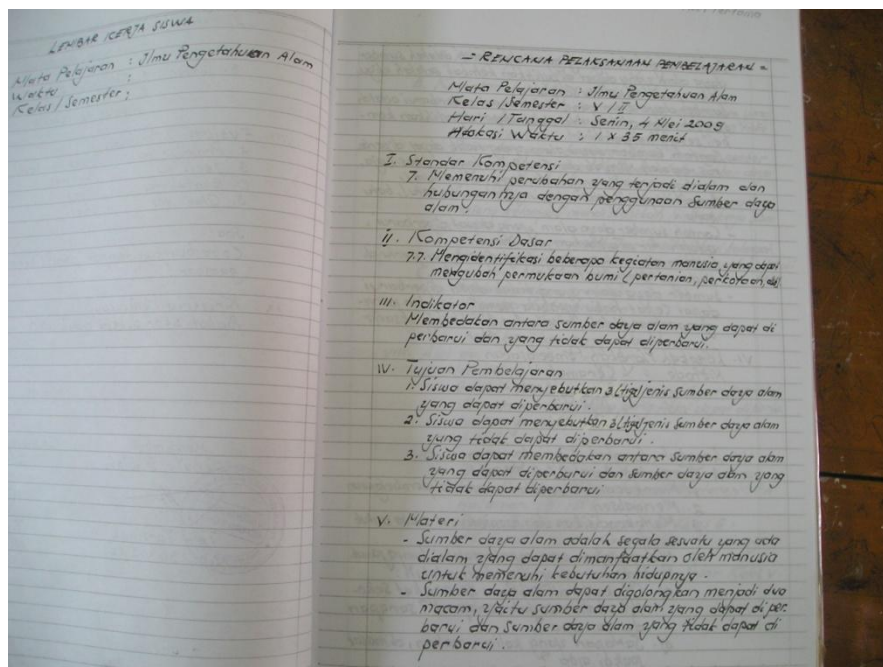 LEMBAR KERJA SISWA
Mata Pelajaran : Ilmu Pengetahuan Alam
Waktu :
Kelas / Semester :
= RENCANA PELAKSANAAN PEMBELAJARAN =
Mata Pelajaran : Ilmu Pengetahuan Alam
Kelas / Semester : V / II
Hari / Tanggal : Senin, 4 Mei 2009
Alokasi Waktu : 1 x 35 menit
I. Standar Kompetensi
7. Memenuhi perubahan yang terjadi dialam dan
hubungannya dengan penggunaan sumber daya
alam.
II. Kompetensi Dasar
7.7. Mengidentifikasi beberapa kegiatan manusia yang dapat
mengubah permukaan bumi (pertanian, perkotaan, dll)
III. Indikator
Membedakan antara sumber daya alam yang dapat di
perbarui dan yang tidak dapat diperbarui.
IV. Tujuan Pembelajaran
1. Siswa dapat menyebutkan 3 (tiga) jenis sumber daya alam
yang dapat diperbarui.
2. Siswa dapat menyebutkan 3 (tiga) jenis sumber daya alam
yang tidak dapat diperbarui.
3. Siswa dapat membedakan antara sumber daya alam
yang dapat diperbarui dan sumber daya alam yang
tidak dapat diperbarui
V. Materi
- Sumber daya alam adalah segala sesuatu yang ada
dialam yang dapat dimanfaatkan oleh manusia
untuk memenuhi kebutuhan hidupnya.
- Sumber daya alam dapat digolongkan menjadi dua
macam, yaitu sumber daya alam yang dapat diper
barui dan sumber daya alam yang tidak dapat di
perbarui.